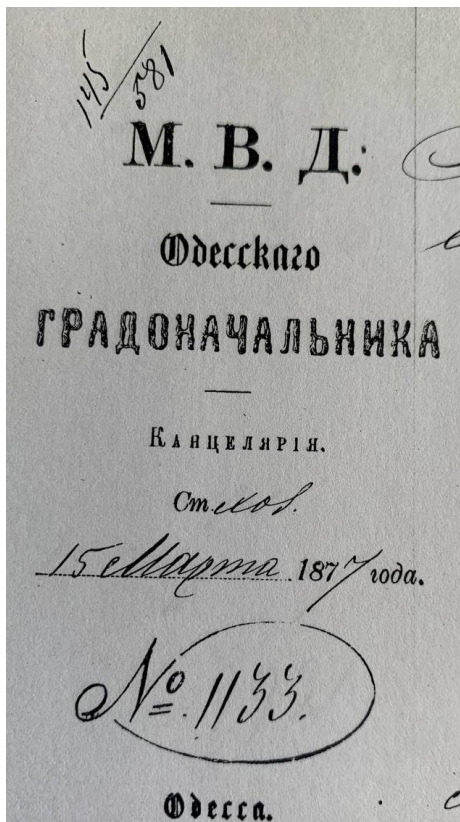 145/581
М. В. Д.
Одесскаго
ГРАДОНАЧАЛЬНИКА
КАНЦЕЛЯРІЯ.
Ст.
15 Марта 1877 года.
№ 1133.
Одесса.